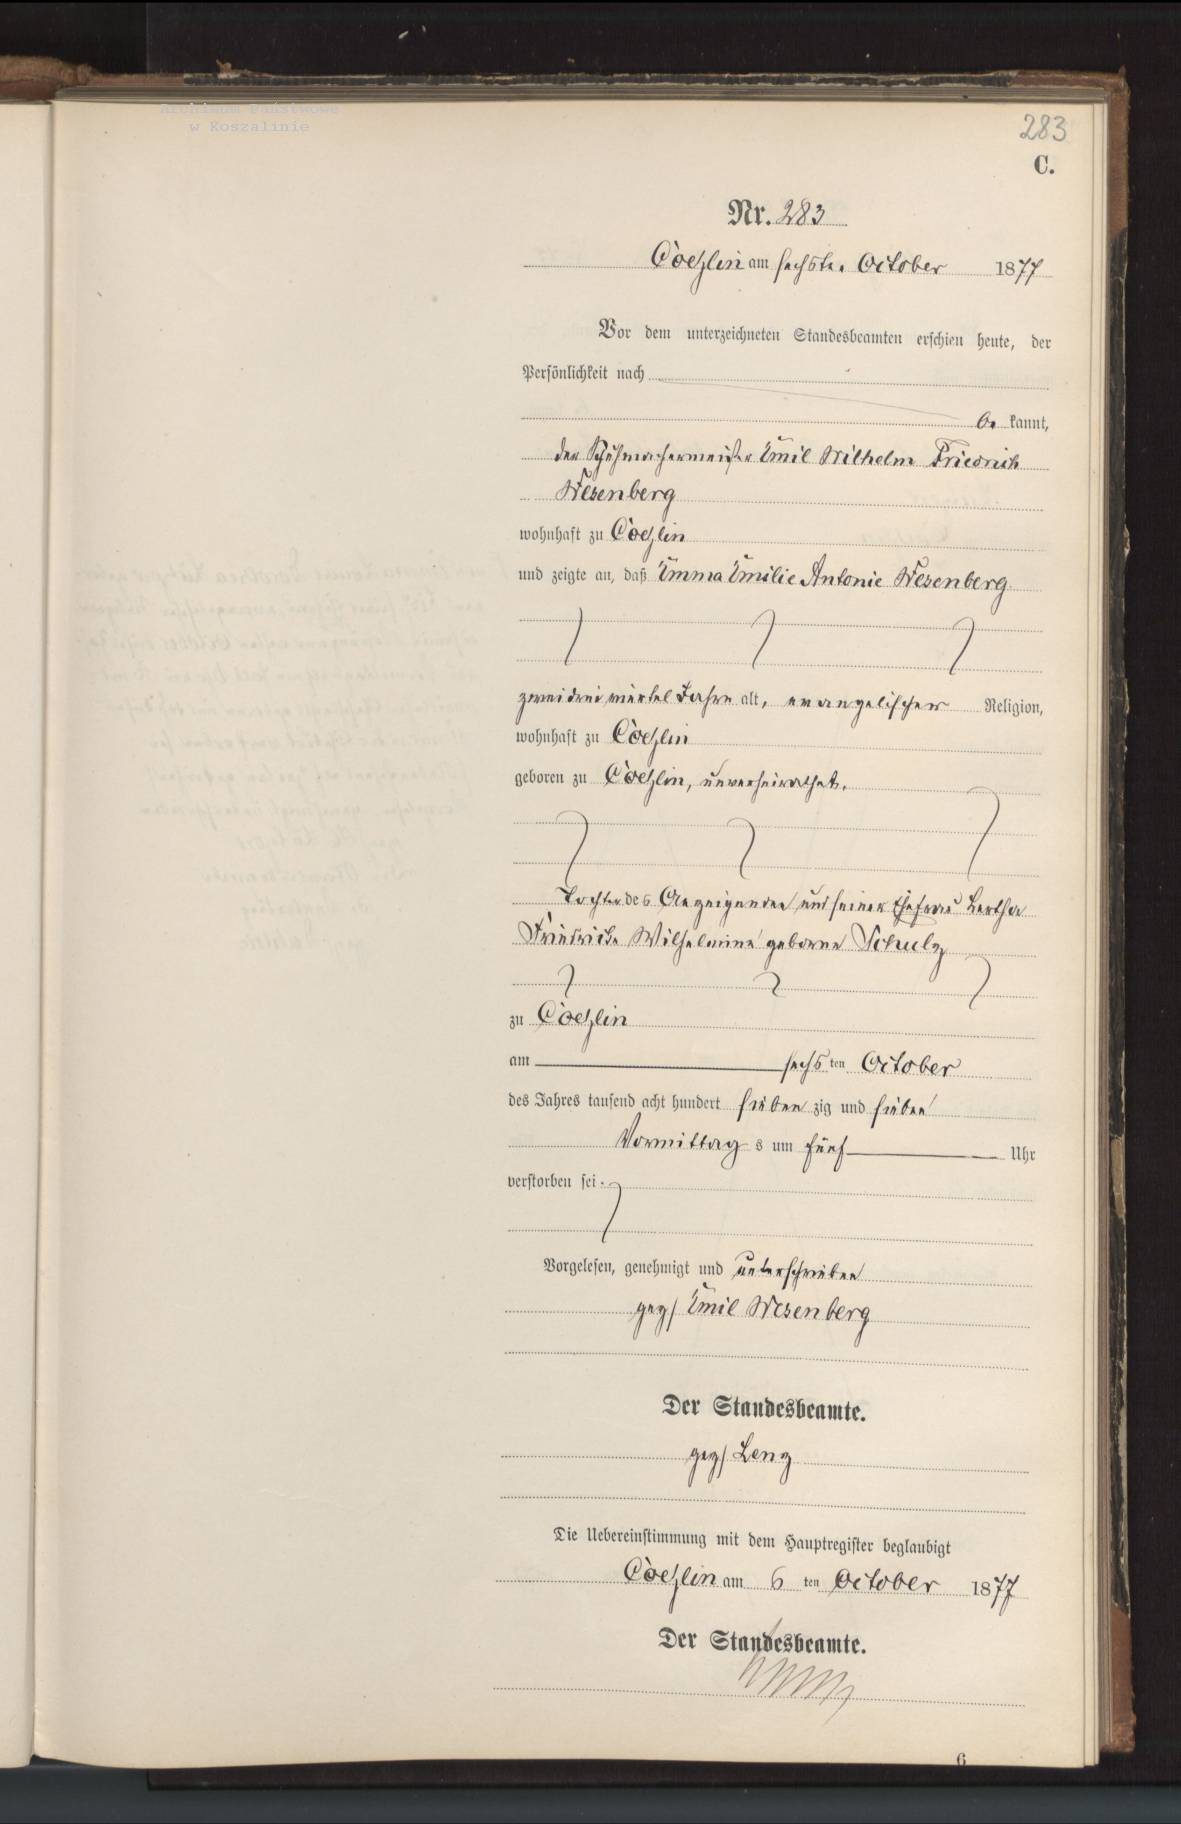 Archiwum Państwowe
w Koszalinie
283
C.
Nr. 283
Cöslin am sechsten October 1877
Vor dem unterzeichneten Standesbeamten erschien heute, der
Persönlichkeit nach
be kannt,
der Schuhmachermeister Emil Wilhelm Friedrich
Wesenberg
wohnhaft zu Cöslin
und zeigte an, daß Emma Emilie Antonie Wesenberg
zwei drei viertel Jahre alt, evangelischer Religion,
wohnhaft zu Cöslin
geboren zu Cöslin, unverheirathet,
Tochter des Anzeigenden und seiner Ehefrau Bertha
Friedricke Wilhelmine geborne Schulz
zu Cöslin
am sechs ten October
des Jahres tausend acht hundert sieben zig und sieben
Vormittag s um fünf Uhr
verstorben sei.
Vorgelesen, genehmigt und unterschrieben
gez/ Emil Wesenberg
Der Standesbeamte.
gez/ Lenz
Die Uebereinstimmung mit dem Hauptregister beglaubigt
Cöslin am 6 ten October 1877
Der Standesbeamte.
6